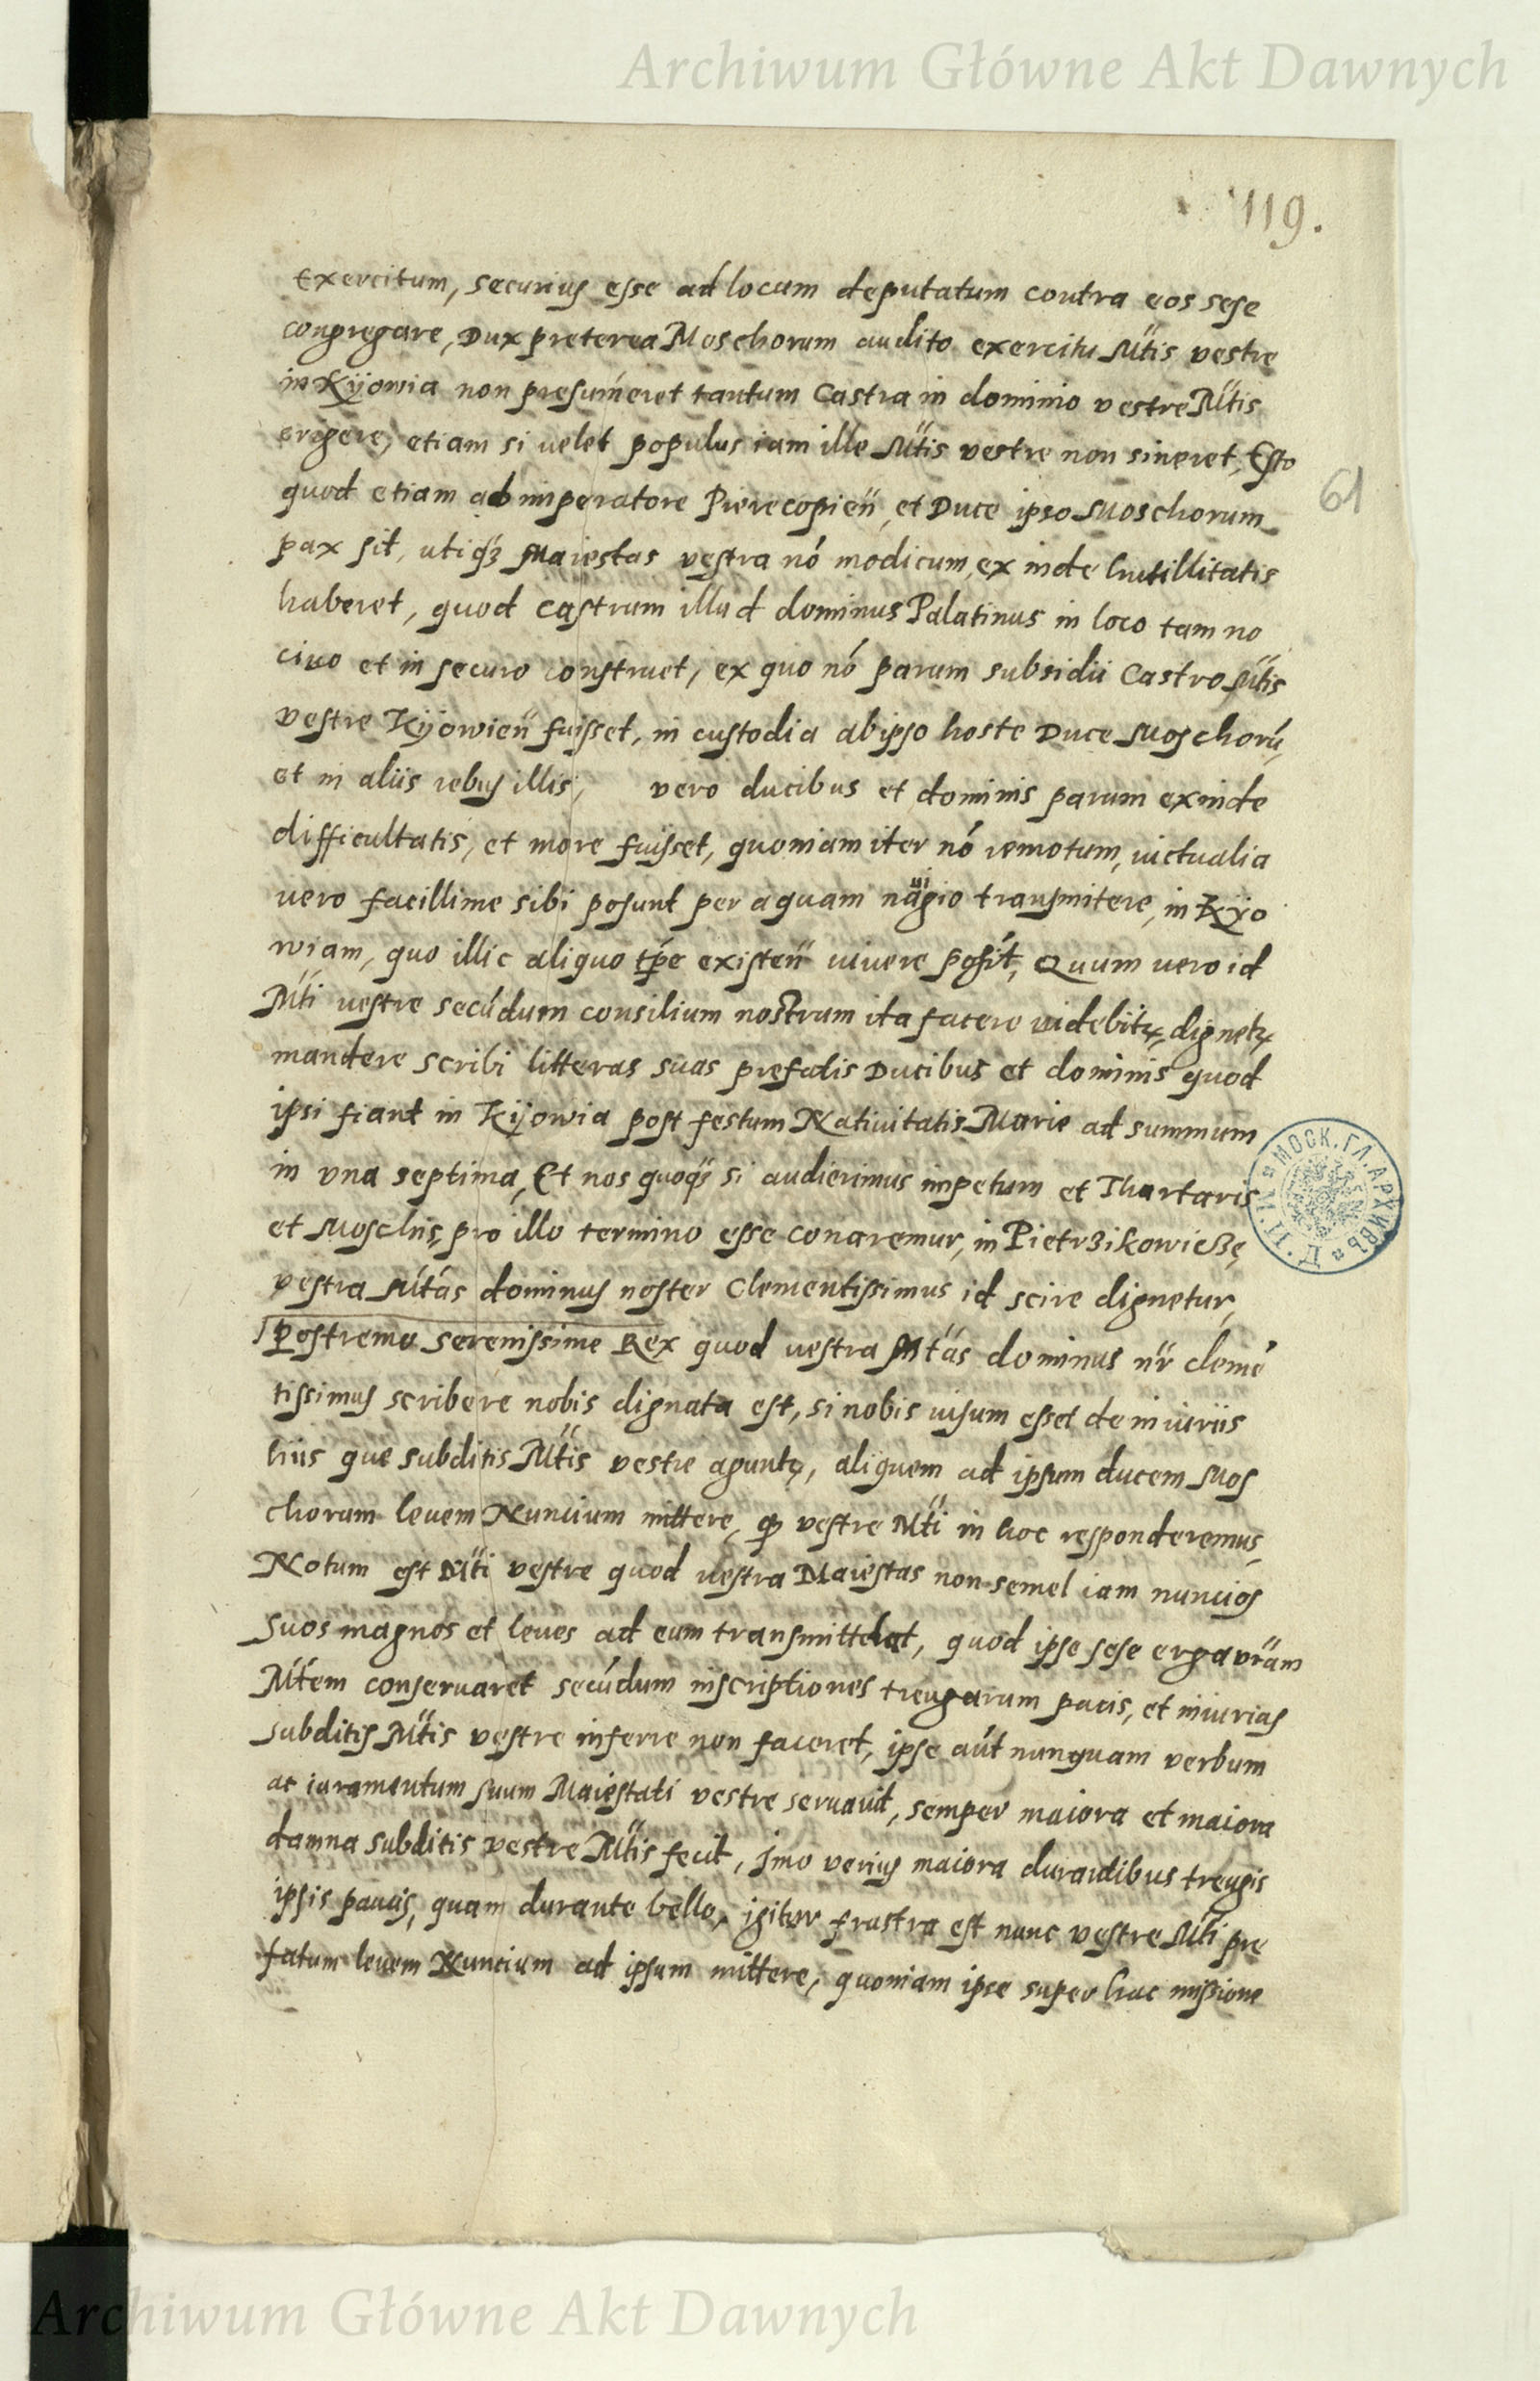 Archiwum Główne Akt Dawnych
119.
Exercitum, securius esse ad locum deputatum contra eos sese
congregare, Dux preterea Moschorum audito exercitu Mtis vestre
in Kijowia non presumeret tantum Castra in dominio vestre Mtis
erigere, etiam si velet populus iam ille Mtis vestre non sineret, Esto
61
quod etiam ab imperatore Pierecopien, et Duce ipso Moschorum
pax sit, utiqz Maiestas vestra nó modicum, ex inde hutillitatis
haberet, quod castrum illud dominus Palatinus in loco tam no
civo et in securo construet, ex quo nó parum subsidii Castro Mtis
vestre Kijowien fuisset, in custodia ab ipso hoste Duce Moschorú,
et in aliis rebus illis, vero ducibus et dominis parum exinde
difficultatis, et more fuisset, quoniam iter nó remotum, victualia
vero facillime sibi posunt per aquam nauigio transmitere, in Kijo
wiam, quo illic aliquo tpe existen vivere posit, Quum vero id
Mti vestre secúdum consilium nostrum ita facere videbitr, dignetr
mandere scribi litteras suas prefatis Ducibus et dominis quod
ipsi fiant in Kijowia post festum Nativitatis Marie ad summum
in vna septima, Et nos quoqz si audierimus impetum et Thartaris
et Moschis, pro illo termino esse conaremur, in Pietrzikowicze
vestra Mtas dominus noster Clementissimus id scire dignetur,
Postremo serenissime Rex quod vestra Mtas dominus nr clemé
tissimus scribere nobis dignata est, si nobis visum esset de iniuriis
hiis que subditis Mtis vestre aguntr, aliquem ad ipsum ducem Mos
chorum levem Nuncium mittere, qd vestre Mti in hoc responderemus,
Notum est Mti vestre quod vestra Maiestas non semel iam nuncios
suos magnos et leves ad eum transmittebat, quod ipse sese erga vram
Mtem conservaret secúdum inscriptiones treugarum pacis, et iniurias
subditis Mtis vestre inferre non faceret, ipse aút nunquam verbum
ac iuramentum suum Maiestati vestre servavit, semper maiora et maiora
damna subditis vestre Mtis fecit, Jmo verius maiora durantibus treugis
ipsis pacis, quam durante bello, igitur frustra est nunc vestre Mti pre
fatum levem Nuncium ad ipsum mittere, quoniam ipse super hac missione
МОСК. ГЛ. АРХИВЪ
Archiwum Główne Akt Dawnych